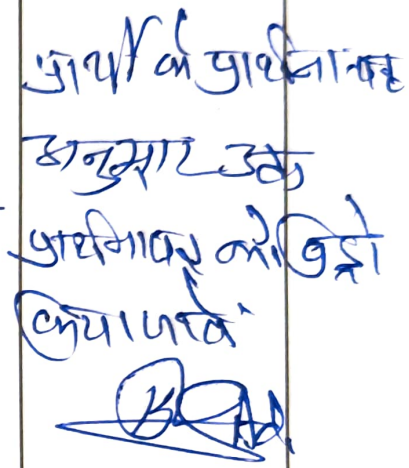 प्रार्थी के प्रार्थना पत्र
अनुसार उक्त
प्रार्थनापत्र को विड्रो
किया जावे